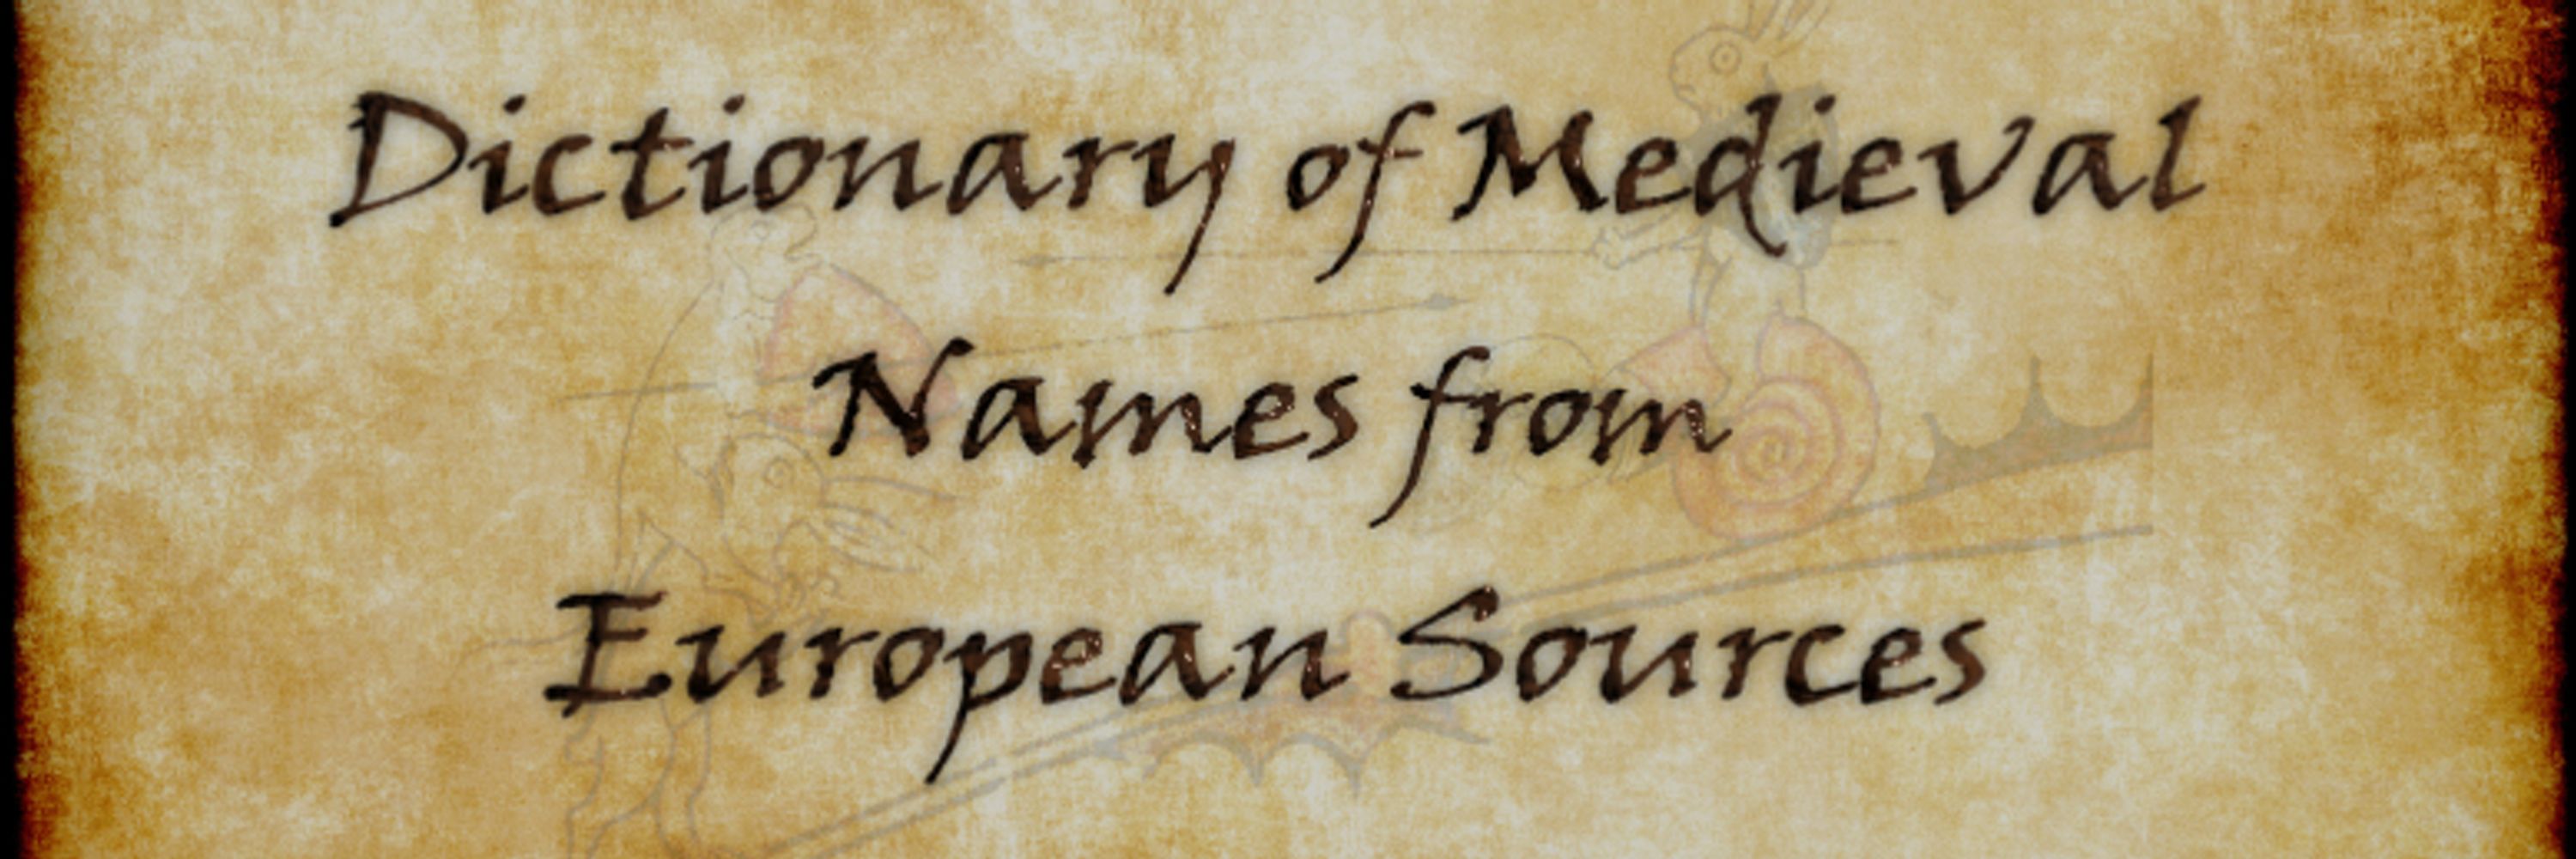 Dictionary of Medieval
Names from
European Sources